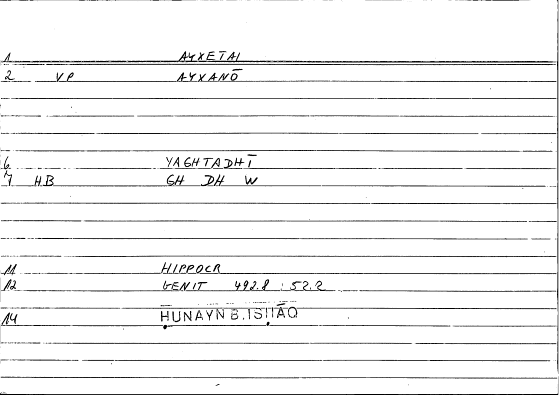 1 AYXETAI
2 VP AYXANŌ
6 YAGHTADHĪ
7 HB GH DH W
11 HIPPOCR
12 GENIT 492.8 : 52.2
14 HUNAYN B. ISḤĀQ